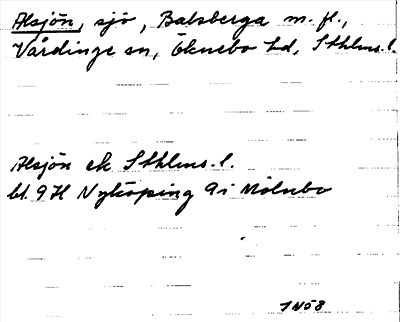 Alsjön, sjö, Balsberga m. fl.,
Vårdinge sn, Öknebo hd, Sthlms. l.
Alsjön ek Sthlms. l.
bl. 9 H Nyköping 9 i Mölnbo